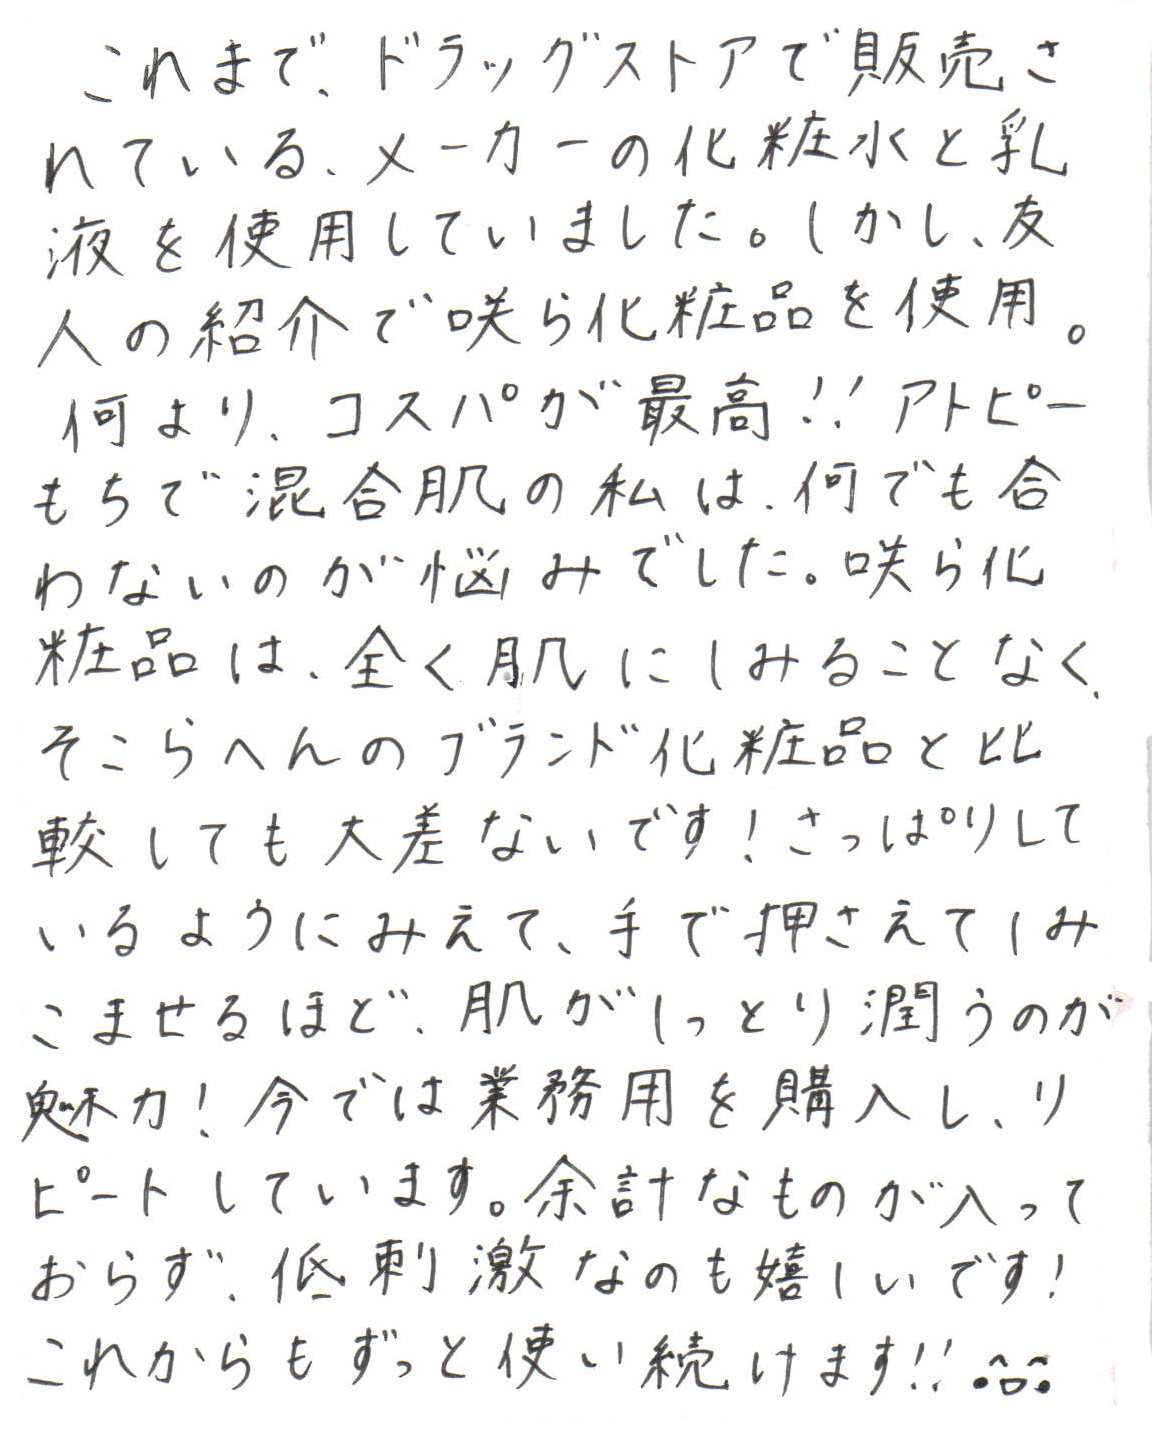 これまで、ドラッグストアで販売さ
れている、メーカーの化粧水と乳
液を使用していました。しかし、友
人の紹介で咲ら化粧品を使用。
何より、コスパが最高!! アトピー
もちで混合肌の私は、何でも合
わないのが悩みでした。咲ら化
粧品は、全く肌にしみることなく、
そこらへんのブランド化粧品と比
較しても大差ないです!さっぱりして
いるようにみえて、手で押さえてしみ
こませるほど、肌がしっとり潤うのが
魅力!今では業務用を購入し、リ
ピートしています。余計なものが入って
おらず、低刺激なのも嬉しいです!
これからもずっと使い続けます!!